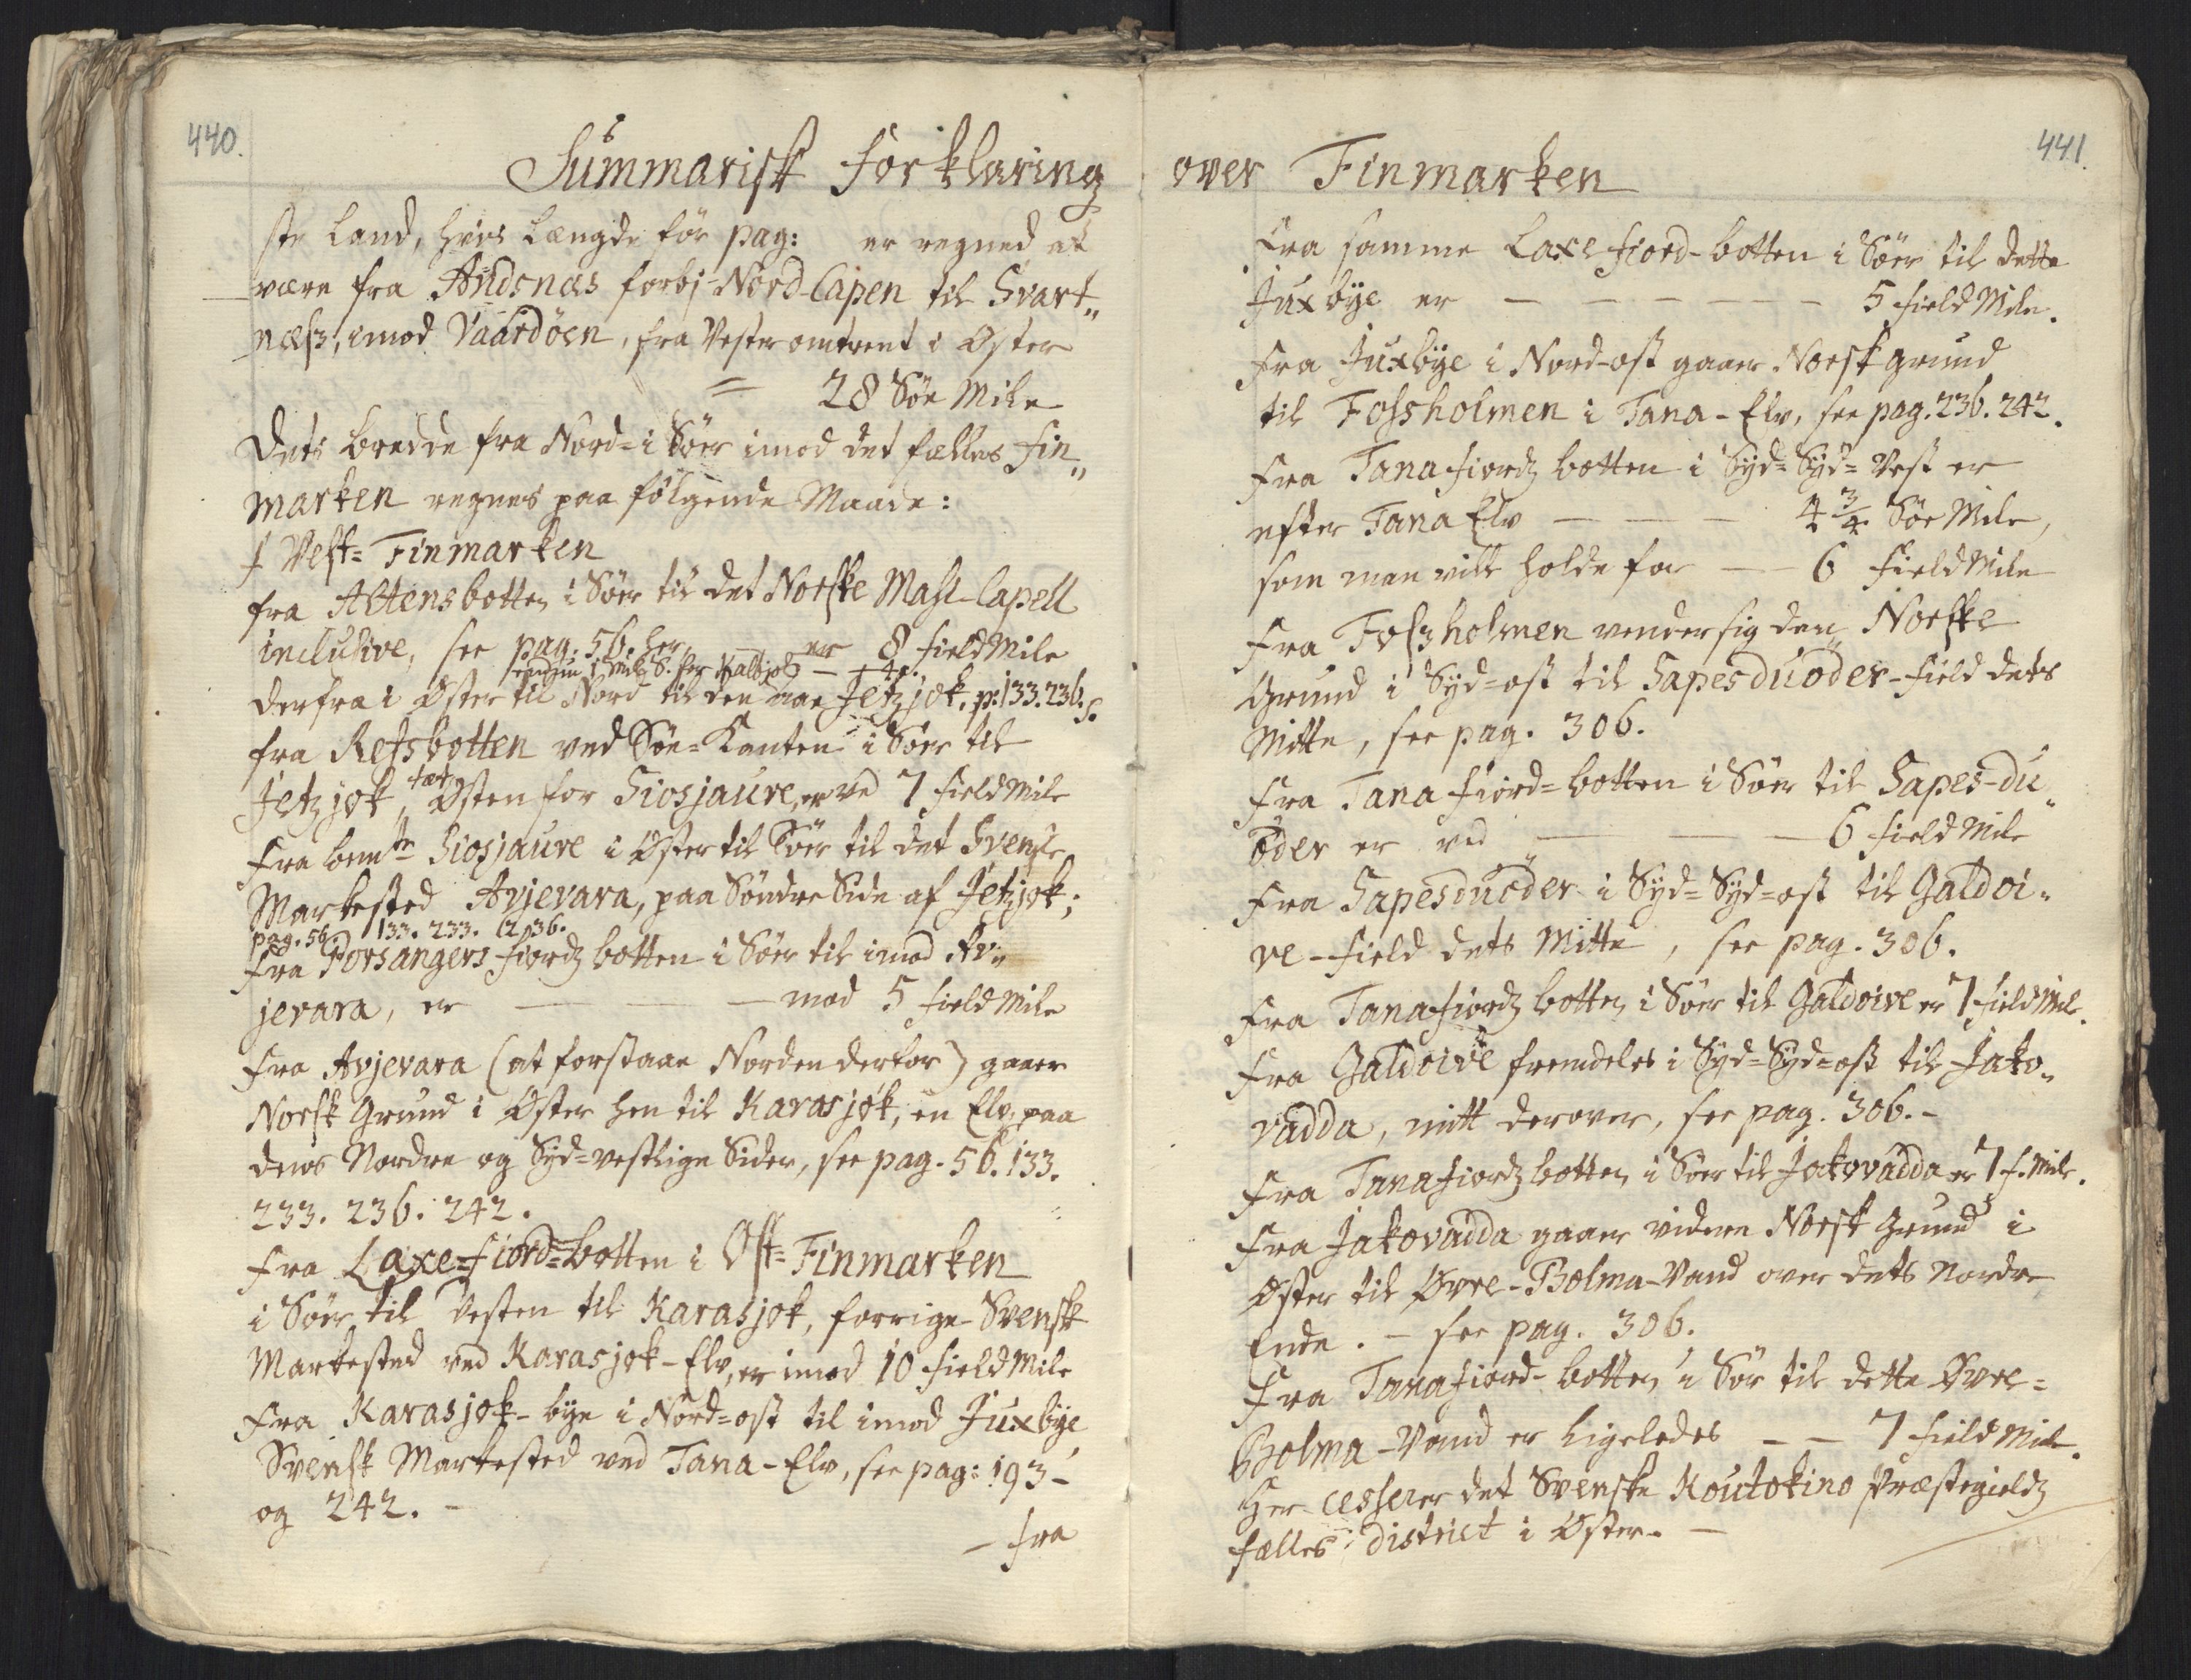 440.
Summarisk Forklaring
ste Land, hvis Længde før pag: er regned at
være fra Andsnæs forbj Nord-Capen til Svart„
næss, imod Vaardöen, fra Vester omtrent i Øster
= 28 Söe Mile
Dets Bredde fra Nord= i Söer imod det fælles Fin„
marken regnes paa fölgende Maade:
I Vest=Finmarken
fra Altensbotten i Söer til det Norske Masi-Capell
inclusive, see pag. 56. her er 8 Field Mile
Derfra i Øster til Nord til den Aae Jetzjok, p. 133. 236.
fra Refsbotten ved Söe=Kanten i Söer til
Jetzjok, tæt Østen for Siosjaure, er ve 7 Field Mile
Fra bemte Siosjaure i Øster til Söer til det Svenske
Markested Avjevara, paa Söndre Side af Jetzjok;
pag. 56 133. 233. 236.
Fra Porsangers Fiordz botten i Söer til imod Av„
jevara, er — — — mod 5 Field Mile
Fra Avjevara (at forstaae Norden derfor) gaaer
Norsk Grund i Øster hen til Karasjok, en Elv, paa
dens Nordre og Syd=vestlige Sider, see pag. 56. 133.
233. 236. 242.
Fra Laxe=Fiord=botten i Øst=Finmarken
i Söer til Vesten til Karasjok, forrige Svensk
Markested ved Karasjok-Elv, er imod 10 Field Mile
Fra Karasjok-bye i Nord=ost til imod Juxbye
Svensk Markested ved Tana-Elv, see pag: 193
og 242. -
- fra
441.
over Finmarken
Fra samme Laxefiord-botten i Söer til dette
Juxbye er — — — — — 5 Field Mile.
Fra Juxbye i Nord-ost gaaer Norsk grund
til Fossholmen i Tana-Elv, see pag. 236. 242.
Fra Tanafiordz botten i Syd=Syd=Vest er
efter Tana Elv — — — 4 3/4 Söe Mile,
som man vill holde for — 6 Field Mile
Fra Fossholmen vender sig den Norske
Grund i Syd=ost til Sapesduöder-Field dets
Mitte, see pag. 306.
Fra Tana Fiord=botten i Söer til Sapes-du„
öder er ved — — — 6 Field Mile
Fra Sapesduöder i Syd=Syd=ost til Galdoi„
ve-Field dets Mitte, see pag. 306.
Fra Tanafiordz botten i Söer til Galdoive er 7 Field Mile.
Fra Galdoive fremdeles i Syd=Syd=ost til Jako„
vadda, mitt derover, see pag. 306. -
Fra Tanafiordz botten i Söer til Jakovadda er 7 f. Mile.
Fra Jakovadda gaaer videre Norsk Grund i
Øster til Øvre-Bolma-Vand over dets Nordre
Ende. - see pag. 306.
Fra Tanafiord-botten i Sör til dette Øvre=
Bolma-Vand er Ligeledes — — 7 Field Mile.
Her cesserer det Svenske Koutokino Præstegieldz
fælles District i Øster. —